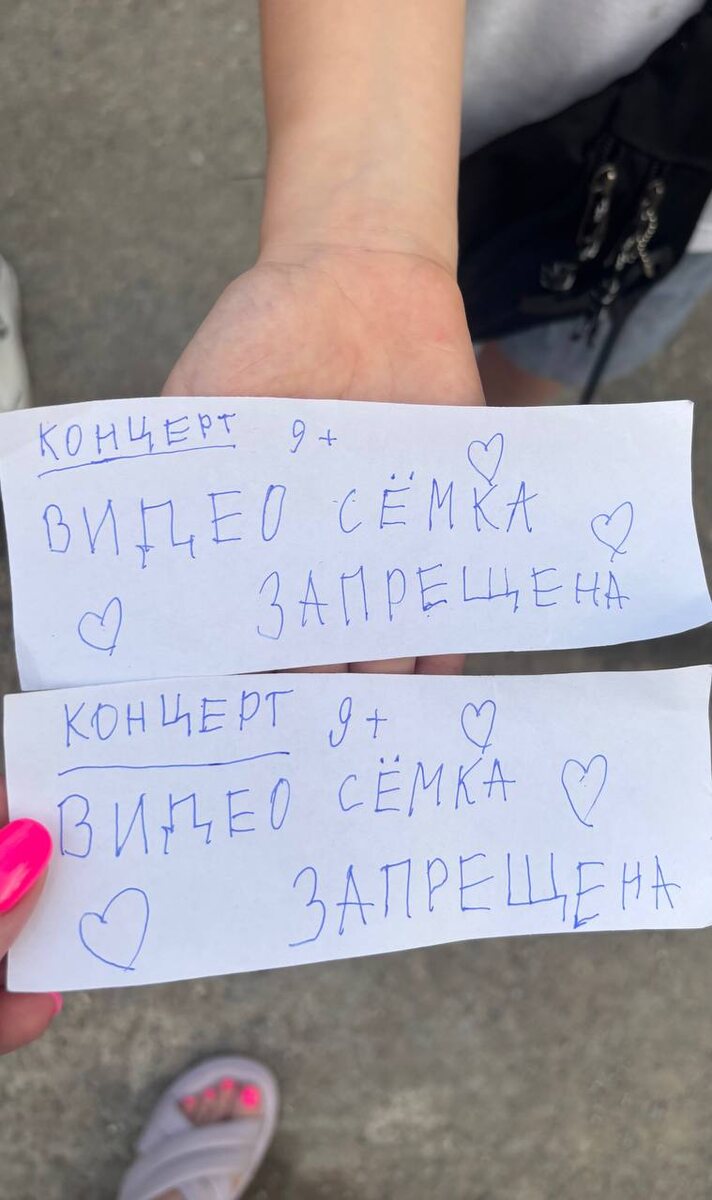 КОНЦЕРТ 9+
ВИДЕО СЁМКА
ЗАПРЕЩЕНА
КОНЦЕРТ 9+
ВИДЕО СЁМКА
ЗАПРЕЩЕНА